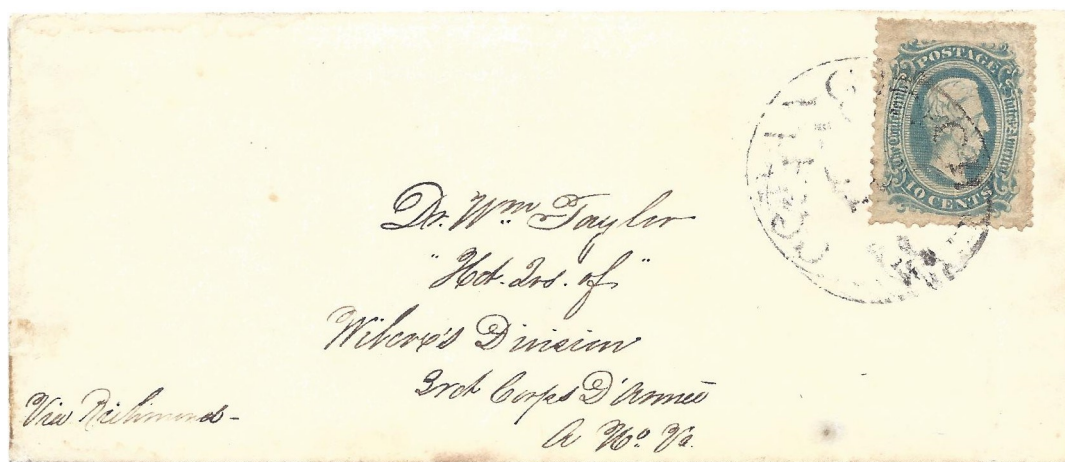 POSTAGE
The Confederate States of America
10 CENTS
Dr. Wm Taylor
"Hd. Qrs. of"
Wilcox's Division
3rd Corps D'Armée
A No. Va.
Via Richmond -